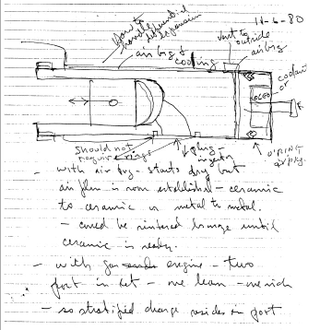 11-6-80
flow to
air brg &
cooling
vent to
outside
air brg
coolant
or
Should not
require rings
plug -
injector
O'RING
or pkg.
- with air brg - starts dry but
air film is soon established - ceramic
to ceramic or metal to metal.
- could be sintered bronze until
ceramic is ready.
- with gas engine - two
port in let - one lean - one rich
- so stratified charge resides in port